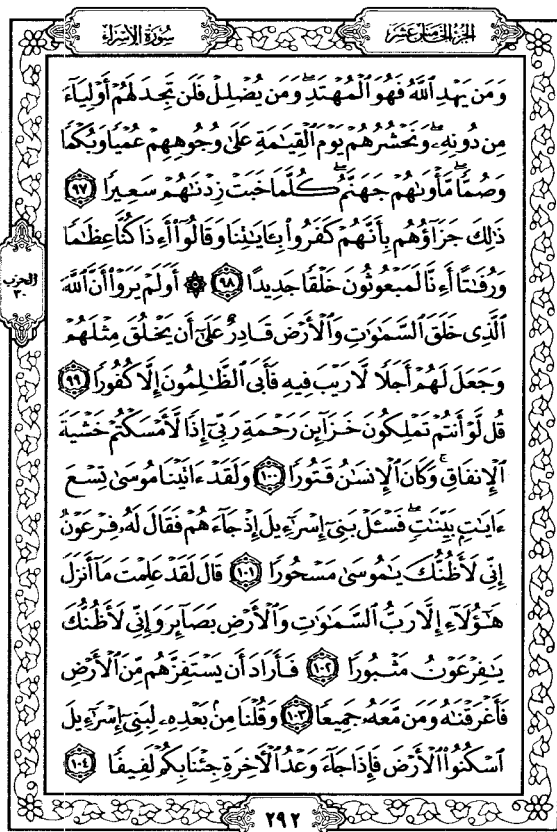 سُورَةُ الإِسْرَاءِ
الجُزْءُ الخَامِسُ عَشَرَ
وَمَن يَهْدِ ٱللَّهُ فَهُوَ ٱلْمُهْتَدِ ۖ وَمَن يُضْلِلْ فَلَن تَجِدَ لَهُمْ أَوْلِيَآءَ
مِن دُونِهِۦ ۖ وَنَحْشُرُهُمْ يَوْمَ ٱلْقِيَٰمَةِ عَلَىٰ وُجُوهِهِمْ عُمْيًا وَبُكْمًا
وَصُمًّا ۖ مَّأْوَىٰهُمْ جَهَنَّمُ ۖ كُلَّمَا خَبَتْ زِدْنَٰهُمْ سَعِيرًا ٩٧
ذَٰلِكَ جَزَآؤُهُم بِأَنَّهُمْ كَفَرُوا۟ بِـَٔايَٰتِنَا وَقَالُوٓا۟ أَءِذَا كُنَّا عِظَٰمًا
وَرُفَٰتًا أَءِنَّا لَمَبْعُوثُونَ خَلْقًا جَدِيدًا ٩٨ ۞ أَوَلَمْ يَرَوْا۟ أَنَّ ٱللَّهَ
ٱلَّذِى خَلَقَ ٱلسَّمَٰوَٰتِ وَٱلْأَرْضَ قَادِرٌ عَلَىٰٓ أَن يَخْلُقَ مِثْلَهُمْ
وَجَعَلَ لَهُمْ أَجَلًا لَّا رَيْبَ فِيهِ فَأَبَى ٱلظَّٰلِمُونَ إِلَّا كُفُورًا ٩٩
قُل لَّوْ أَنتُمْ تَمْلِكُونَ خَزَآئِنَ رَحْمَةِ رَبِّىٓ إِذًا لَّأَمْسَكْتُمْ خَشْيَةَ
ٱلْإِنفَاقِ ۚ وَكَانَ ٱلْإِنسَٰنُ قَتُورًا ١٠٠ وَلَقَدْ ءَاتَيْنَا مُوسَىٰ تِسْعَ
ءَايَٰتٍۭ بَيِّنَٰتٍ ۖ فَسْـَٔلْ بَنِىٓ إِسْرَٰٓءِيلَ إِذْ جَآءَهُمْ فَقَالَ لَهُۥ فِرْعَوْنُ
إِنِّى لَأَظُنُّكَ يَٰمُوسَىٰ مَسْحُورًا ١٠١ قَالَ لَقَدْ عَلِمْتَ مَآ أَنزَلَ
هَٰٓؤُلَآءِ إِلَّا رَبُّ ٱلسَّمَٰوَٰتِ وَٱلْأَرْضِ بَصَآئِرَ وَإِنِّى لَأَظُنُّكَ
يَٰفِرْعَوْنُ مَثْبُورًا ١٠٢ فَأَرَادَ أَن يَسْتَفِزَّهُم مِّنَ ٱلْأَرْضِ
فَأَغْرَقْنَٰهُ وَمَن مَّعَهُۥ جَمِيعًا ١٠٣ وَقُلْنَا مِنۢ بَعْدِهِۦ لِبَنِىٓ إِسْرَٰٓءِيلَ
ٱسْكُنُوا۟ ٱلْأَرْضَ فَإِذَا جَآءَ وَعْدُ ٱلْءَاخِرَةِ جِئْنَا بِكُمْ لَفِيفًا ١٠٤
الحزب
٣٠
٢٩٢